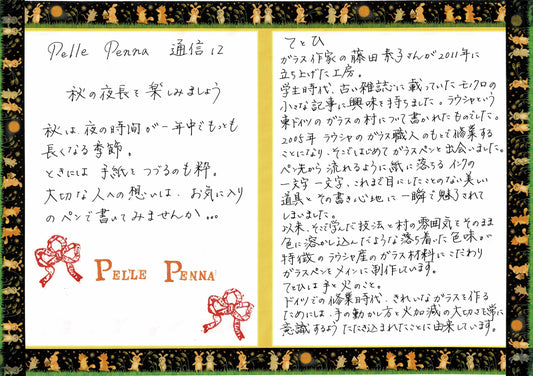 Pelle Penna 通信12
秋の夜長を楽しみましょう
秋は、夜の時間が一年中でもっとも
長くなる季節。
ときには 手紙をつづるのも粋。
大切な人への想いは、お気に入り
のペンで書いてみませんか…
PELLE PENNA
てとひ
ガラス作家の藤田恭子さんが2011年に
立ち上げた工房。
学生時代、古い雑誌に載っていたモノクロの
小さな記事に興味を持ちました。ラウシャという
東ドイツのガラスの村について書かれたものでした。
2005年 ラウシャのガラス職人のもとで修業する
ことになり、そこではじめてガラスペンと出会いました。
ペン先から流れるように紙に落ちるインクの
一文字一文字、これまで目にしたことのない美しい
道具とその書き心地に一瞬で魅了されて
しまいました。
以来、そこで学んだ技法と村の雰囲気をそのまま
色に溶かし込んだような落ち着いた色味が
特徴のラウシャ産のガラス材料にこだわり
ガラスペンをメインに制作しています。
てとひは手と火のこと。
ドイツでの修業時代、きれいなガラスを作る
ためには、手の動かし方と火加減の大切さを常に
意識するようたたき込まれたことに由来しています。